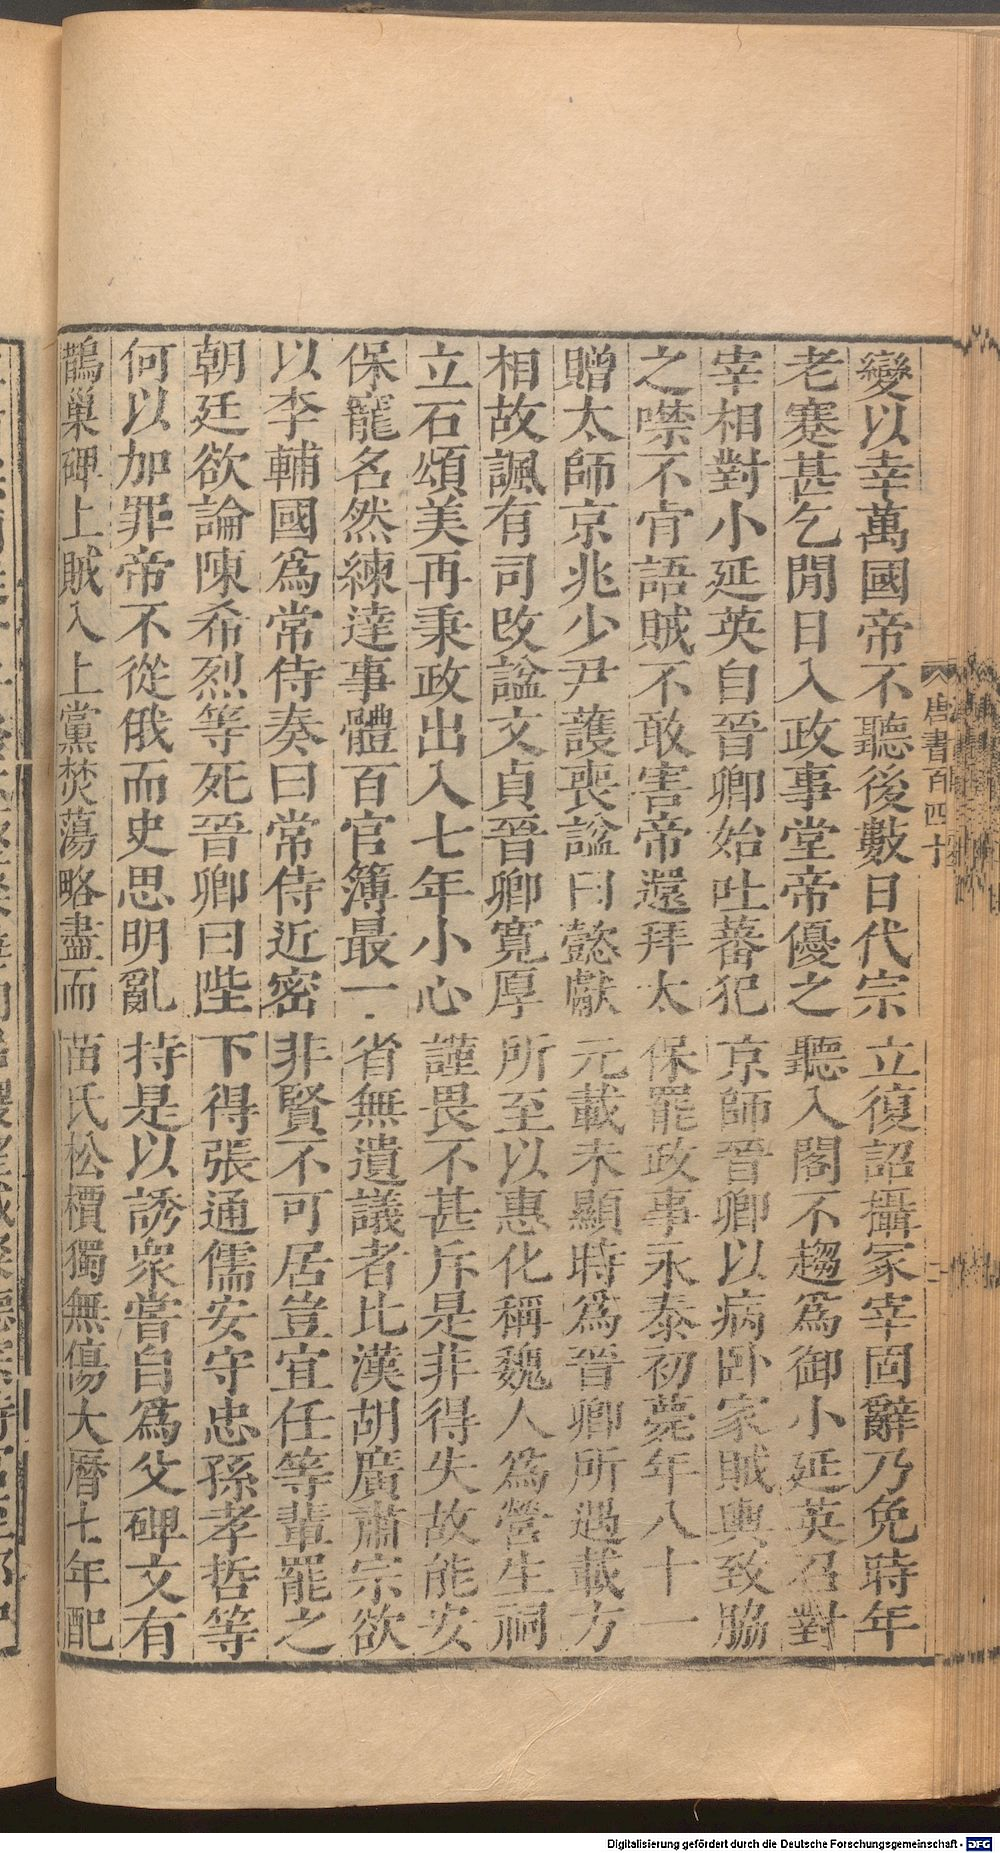 變以幸萬國帝不聽後數日代宗立復詔攝冢宰固辭乃免時年
老蹇甚乞閒日入政事堂帝優之聽入閣不趨爲御小延英召對
宰相對小延英自晉卿始吐蕃犯京師晉卿以病卧家賊輿致脇
之噤不肯語賊不敢害帝還拜太保罷政事永泰初薨年八十一
贈太師京兆少尹護喪謚曰懿獻元載未顯時爲晉卿所遇載方
相故諷有司改謚文貞晉卿寬厚所至以惠化稱魏人爲營生祠
立石頌美再秉政出入七年小心謹畏不甚斥是非得失故能安
保寵名然練達事體百官簿最一省無遺議者比漢胡廣肅宗欲
以李輔國爲常侍奏曰常侍近密非賢不可居豈宜任等輩罷之
朝廷欲論陳希烈等死晉卿曰陛下得張通儒安守忠孫孝哲等
何以加罪帝不從俄而史思明亂持是以誘衆嘗自爲父碑文有
鵲巢碑上賊入上黨焚蕩略盡而苗氏松檟獨無傷大曆七年配
唐書百四十
Digitalisierung gefördert durch die Deutsche Forschungsgemeinschaft - DFG